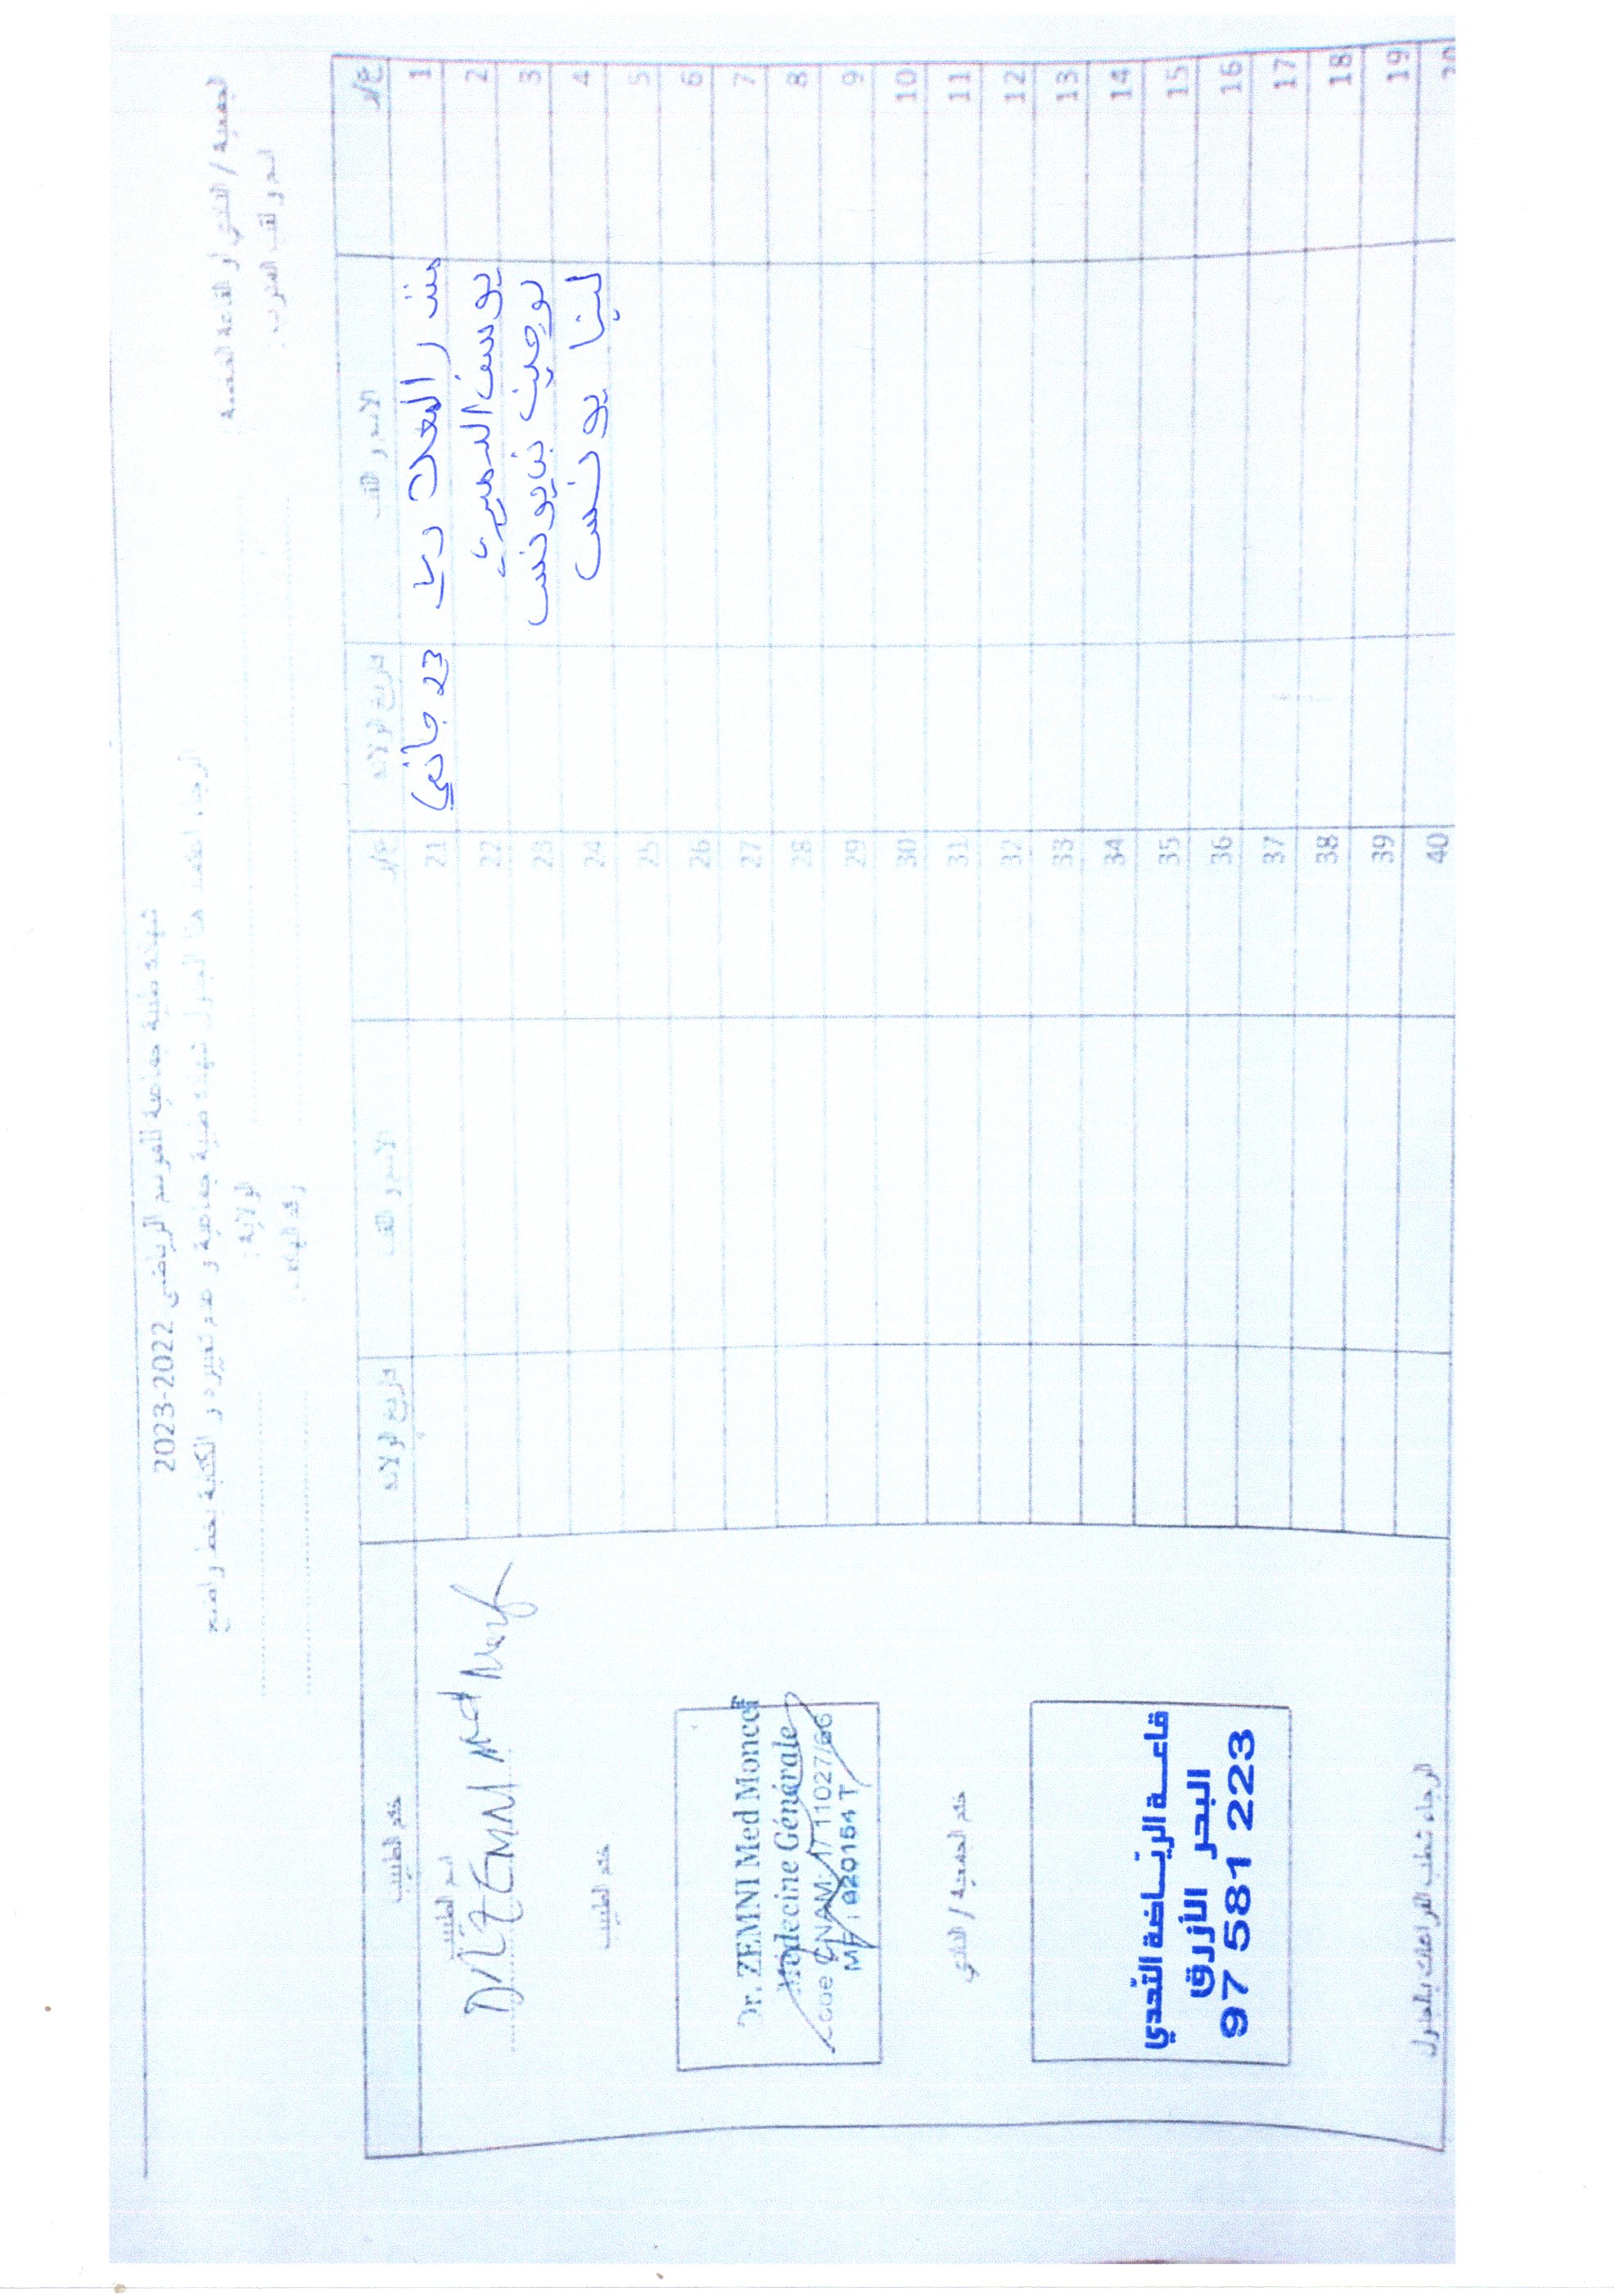 شهادة طبية جماعية للموسم الرياضي 2022-2023
الرجاء اعتماد هذا الجدول شهادة طبية جماعية و عدم تغييره و الكتابة بخط واضح
الجمعية / النادي أو القاعة الخاصة :
الولاية :
اسم و لقب المدرب :
رقم الهاتف :
ع/ر الاسم و اللقب تاريخ الولادة ع/ر الاسم و اللقب تاريخ الولادة ختم الطبيب
1 23 جانفي 21
2 يوسف 22
3 بن يونس 23
4 لينا يونس 24
5 25
6 26
7 27
8 28
9 29
10 30
11 31
12 32
13 33
14 34
15 35
16 36
17 37
18 38
19 39
20 40
اسم الطبيب
Dr ZEMNI Med
ختم الطبيب
Dr. ZEMNI Med Moncef
Médecine Générale
code CNAM: 1/11027/66
ختم الجمعية / النادي
قاعـة الريـاضة التحدي
البحر الأزرق
97 581 223
الرجاء شطب الفراغات بالجدول